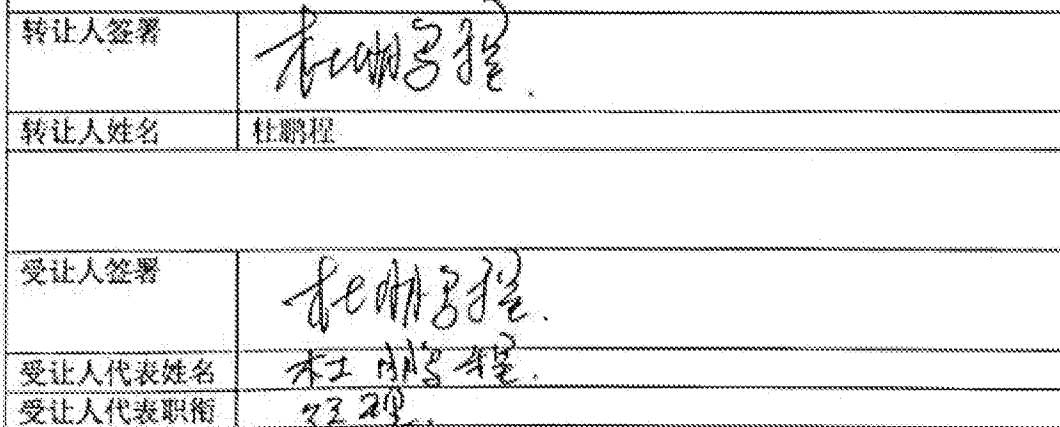 转让人签署 杜鹏程.
转让人姓名 杜鹏程
受让人签署 杜鹏程.
受让人代表姓名 杜鹏程.
受让人代表职衔 经理.